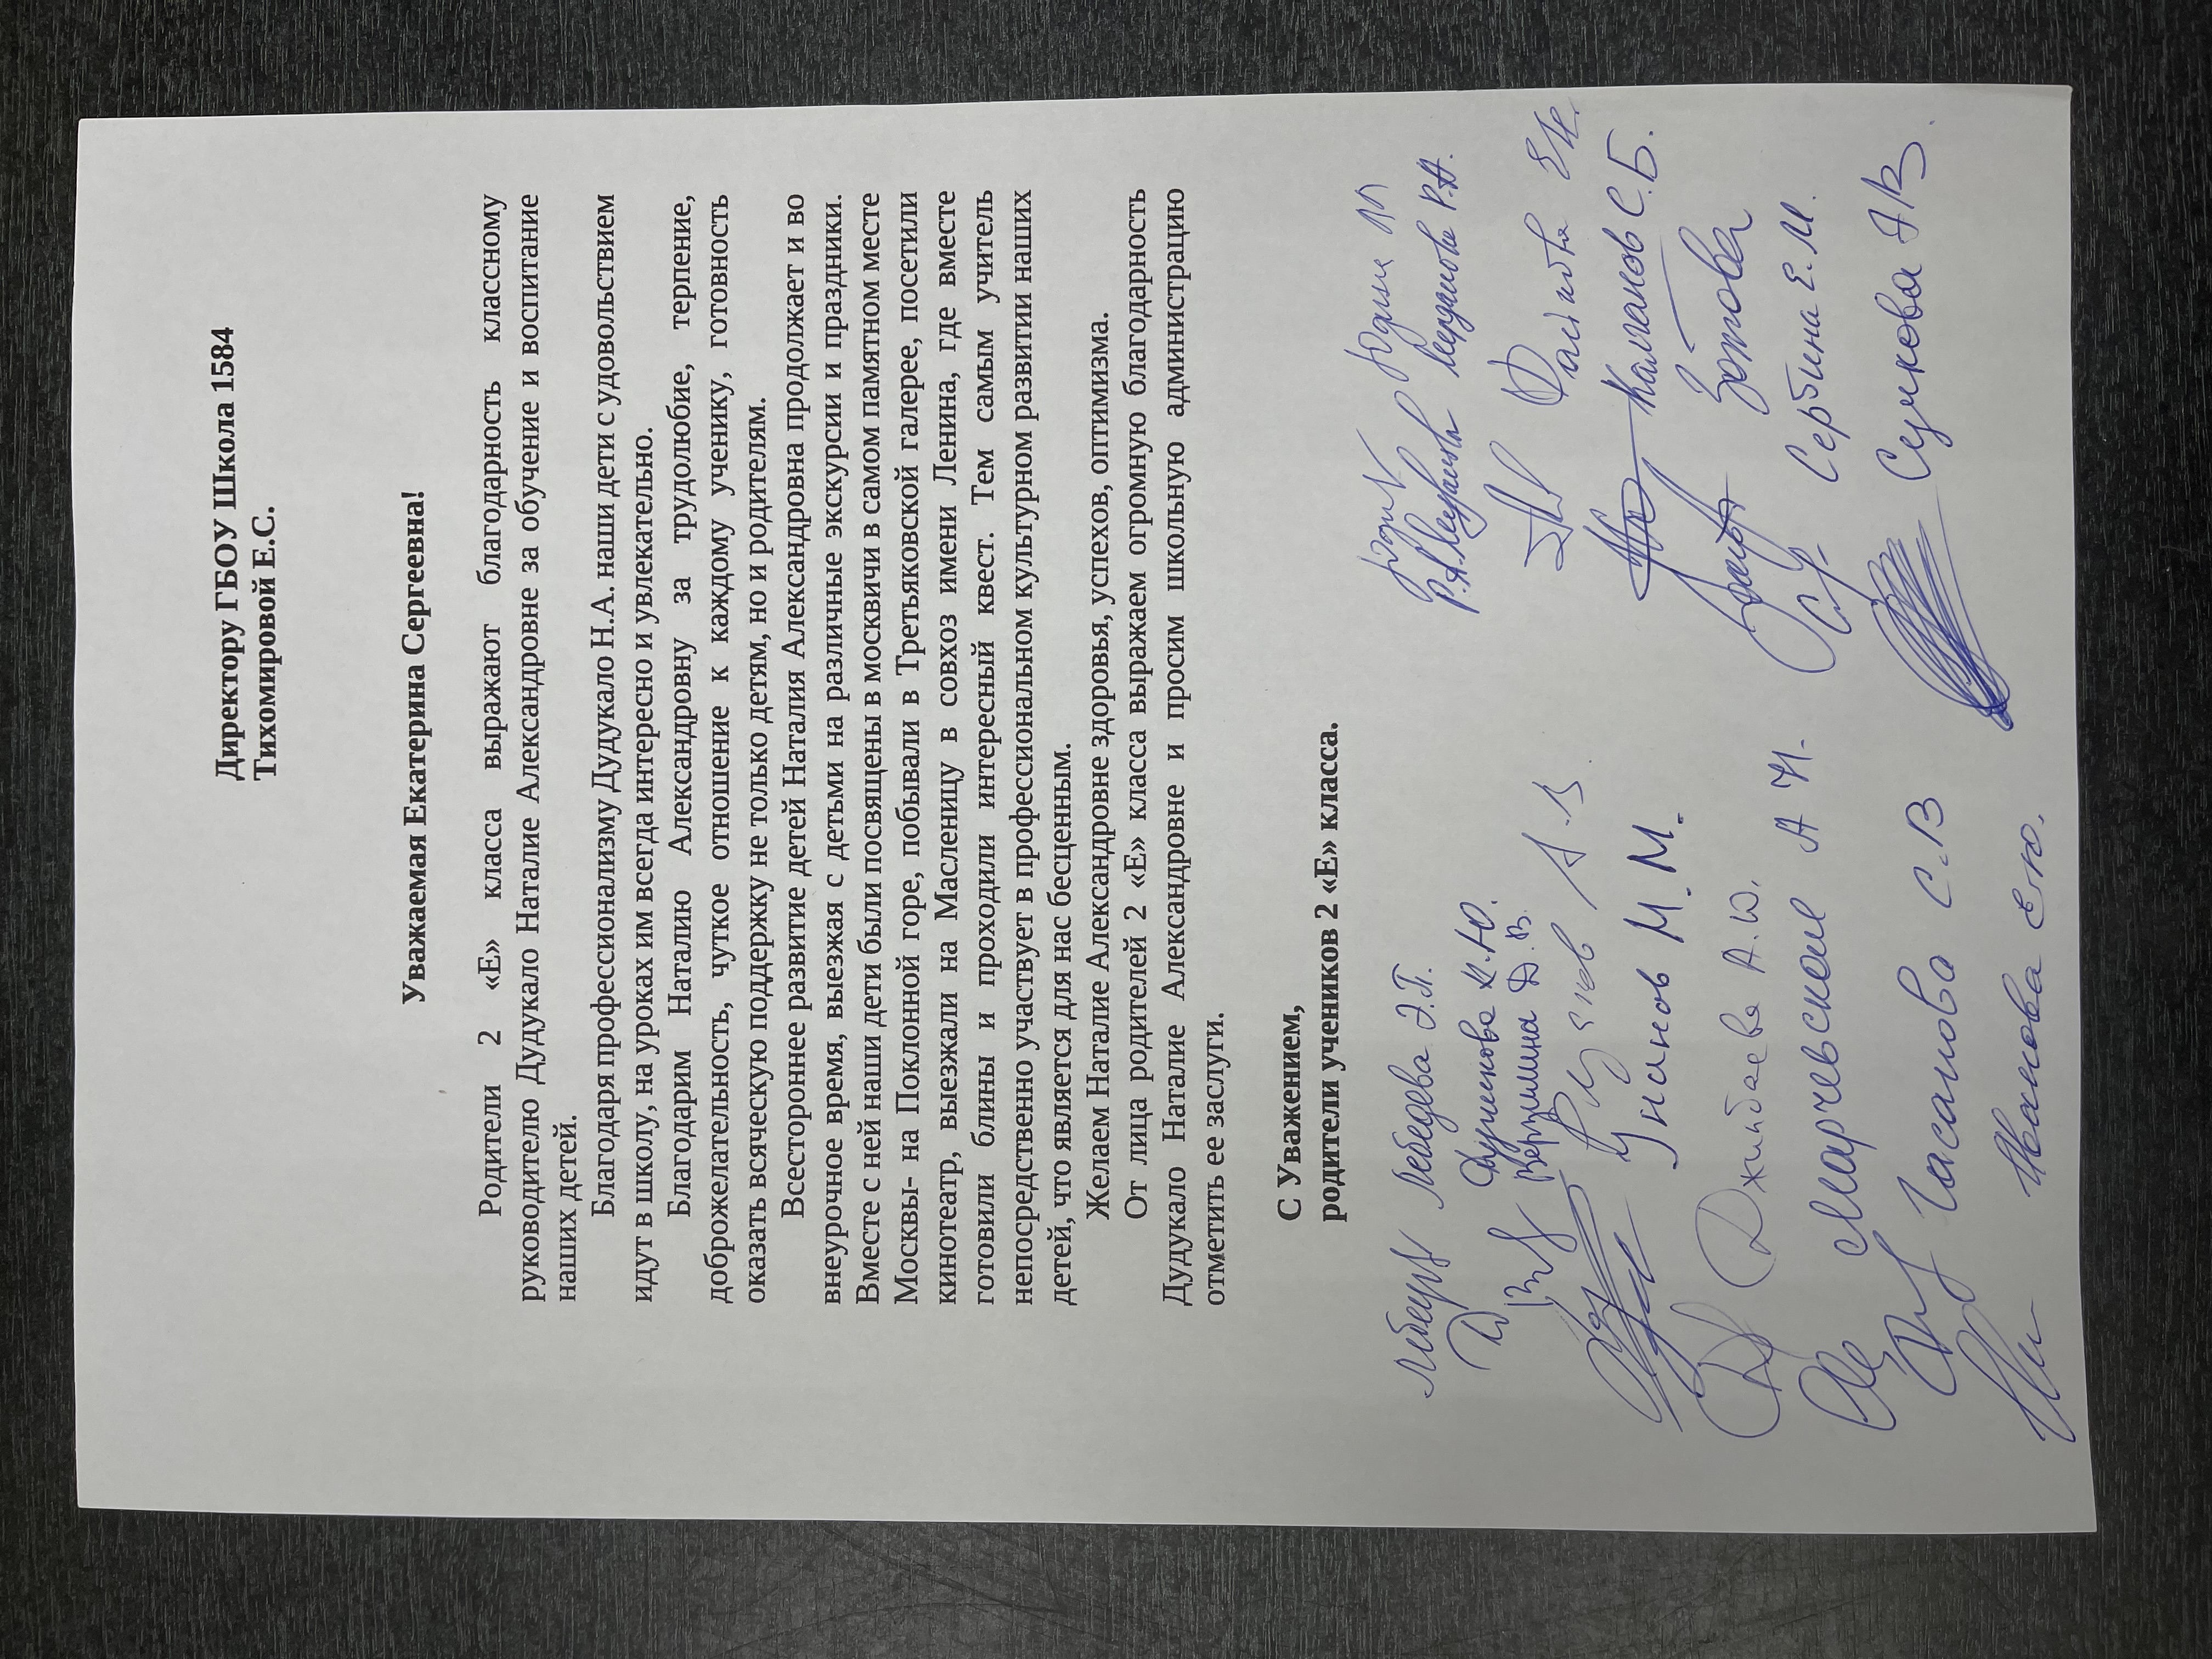 Директору ГБОУ Школа 1584
Тихомировой Е.С.
Уважаемая Екатерина Сергеевна!
Родители 2 «Е» класса выражают благодарность классному
руководителю Дудукало Наталие Александровне за обучение и воспитание
наших детей.
Благодаря профессионализму Дудукало Н.А. наши дети с удовольствием
идут в школу, на уроках им всегда интересно и увлекательно.
Благодарим Наталию Александровну за трудолюбие, терпение,
доброжелательность, чуткое отношение к каждому ученику, готовность
оказать всяческую поддержку не только детям, но и родителям.
Всестороннее развитие детей Наталия Александровна продолжает и во
внеурочное время, выезжая с детьми на различные экскурсии и праздники.
Вместе с ней наши дети были посвящены в москвичи в самом памятном месте
Москвы- на Поклонной горе, побывали в Третьяковской галерее, посетили
кинотеатр, выезжали на Масленицу в совхоз имени Ленина, где вместе
готовили блины и проходили интересный квест. Тем самым учитель
непосредственно участвует в профессиональном культурном развитии наших
детей, что является для нас бесценным.
Желаем Наталие Александровне здоровья, успехов, оптимизма.
От лица родителей 2 «Е» класса выражаем огромную благодарность
Дудукало Наталие Александровне и просим школьную администрацию
отметить ее заслуги.
С Уважением,
родители учеников 2 «Е» класса.
Лебедева Э.П.
К.Ю.
Д.В.
А.В
Унанов М.М.
Джибаева А.Ю.
А И.
Гасанова С.В
Иванова Е.Ю.
Р.А.
Калганов С.Б.
Зотова
Сербина Е.М.
Сумкова А В.